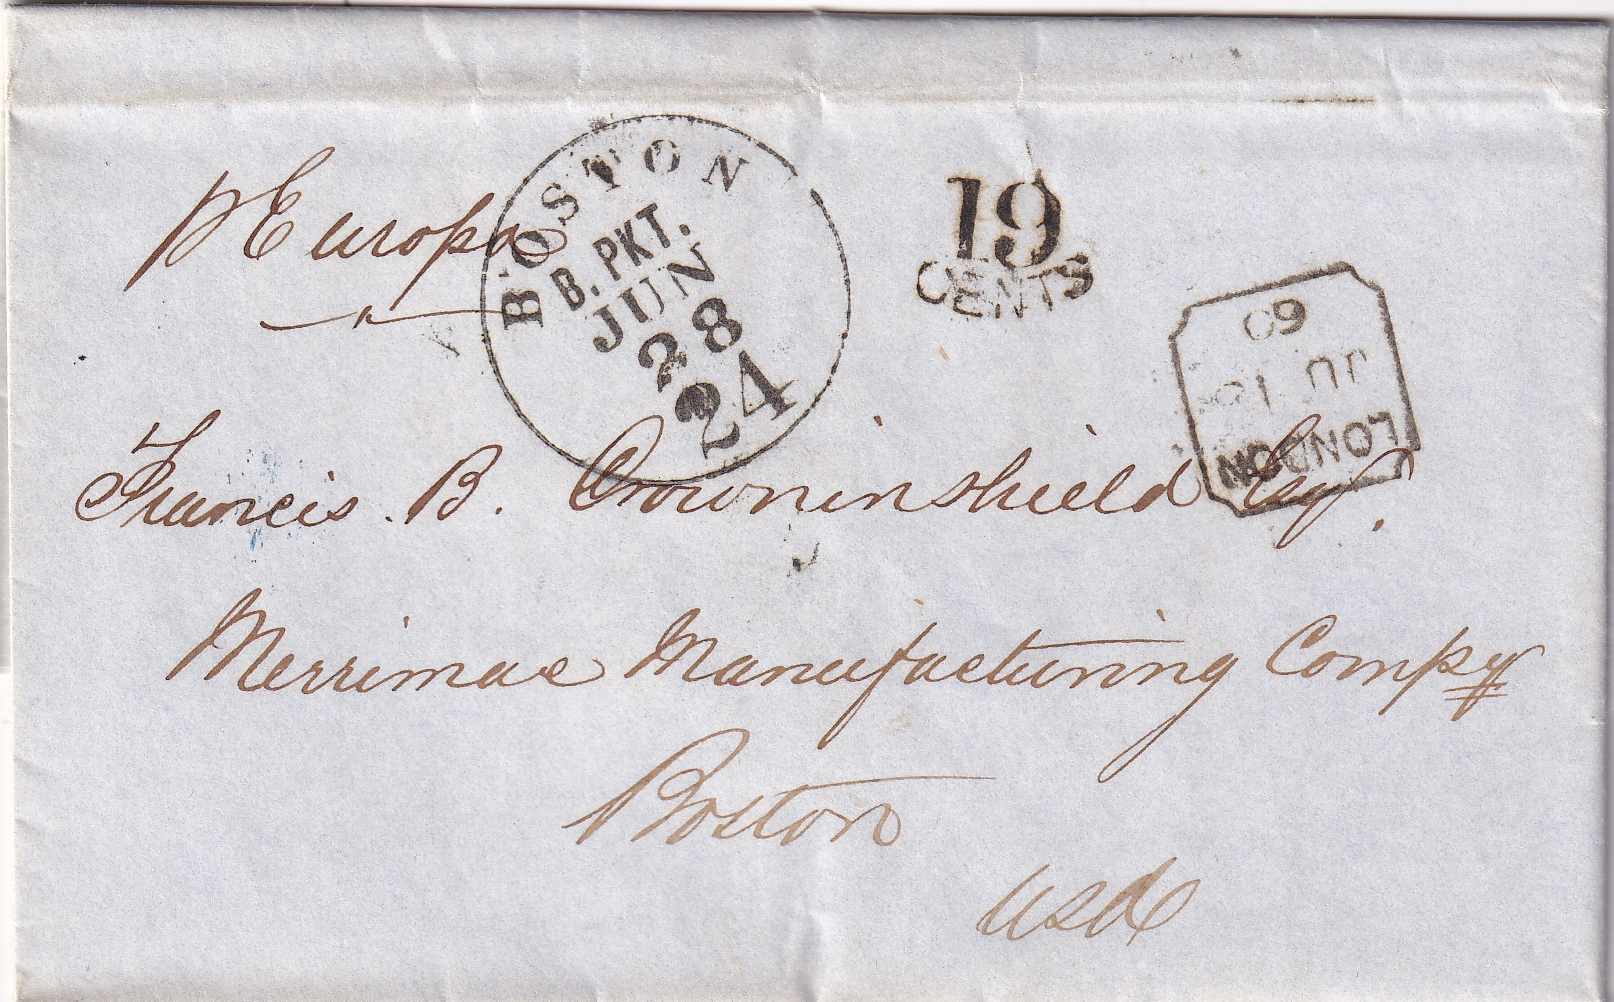 p Europa
BOSTON
B. PKT.
JUN
28
24
19
CENTS
60
LONDON
Francis. B. Crowninshield Esqr.
Merrimac Manufacturing Compy
Boston
USA